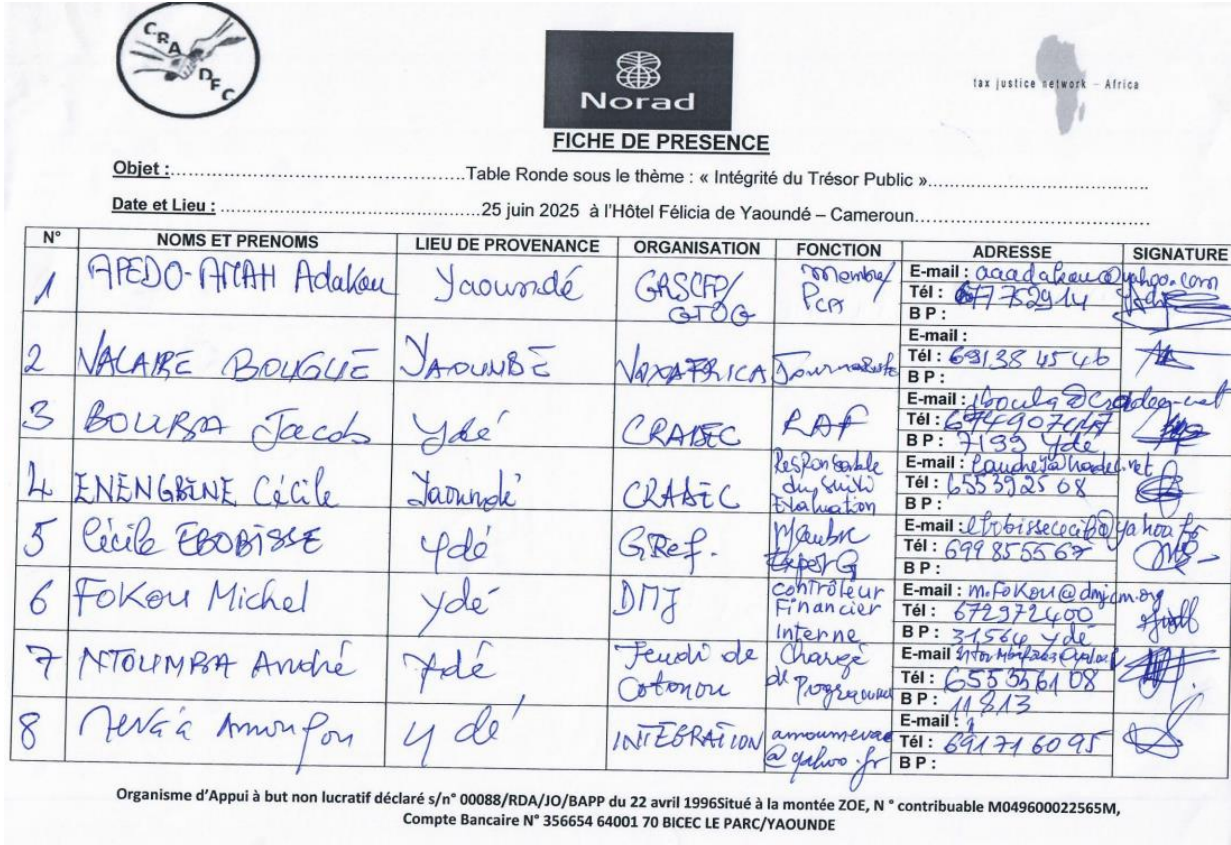 CRADEC
Norad
tax justice network – Africa
FICHE DE PRESENCE
Objet :.......Table Ronde sous le thème : « Intégrité du Trésor Public ».......
Date et Lieu : .......25 juin 2025 à l'Hôtel Félicia de Yaoundé – Cameroun.......
N° NOMS ET PRENOMS LIEU DE PROVENANCE ORGANISATION FONCTION ADRESSE SIGNATURE
1 APEDO-AMAH Adakou Yaoundé GRSCFP/ Membre/ E-mail : aaadakou@yahoo.com
GTOG PCA Tél : 677752914
B P :
2 VALAIRE BOUGUE YAOUNDE VOXAFRICA Journaliste E-mail :
Tél : 691 38 45 46
B P :
3 BOUBA Jacob Ydé CRADEC RAF E-mail :
Tél : 674907447
B P : 7199 Ydé
4 ENENGBENE Cécile Yaoundé CRADEC Responsable du suivi Evaluation E-mail :
Tél : 655392568
B P :
5 Cécile EBOBISSE Ydé G.Ref. Membre Expert G E-mail : ebobissececile@yahoo.fr
Tél : 699 855567
B P :
6 FOKOU Michel Ydé DMJ Contrôleur Financier Interne E-mail : m.fokou@dmjcm.org
Tél : 672972400
B P : 31564 Ydé
7 NTOUMBA André Ydé Jeudi de Cotonou Chargé de Programme E-mail
Tél : 655356108
B P : 11 813
8 Ydé INTEGRATION @yahoo.fr E-mail :
Tél : 691716095
B P :
Organisme d'Appui à but non lucratif déclaré s/n° 00088/RDA/JO/BAPP du 22 avril 1996Situé à la montée ZOE, N ° contribuable M049600022565M,
Compte Bancaire N° 356654 64001 70 BICEC LE PARC/YAOUNDE